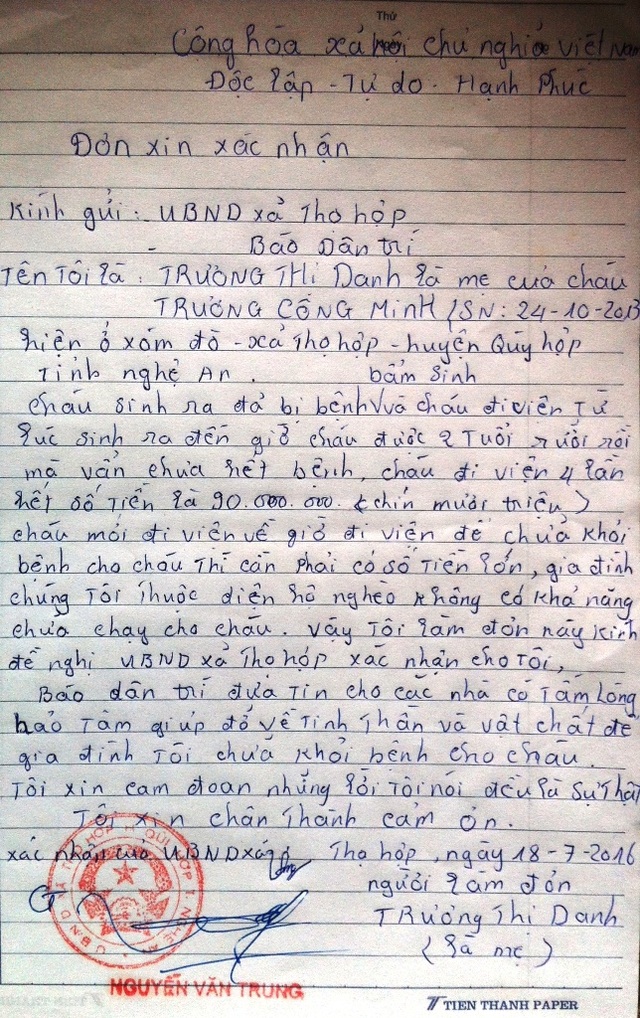 Thứ
Cộng hòa xả hội chủ nghĩa việt Nam
Độc lập - Tự do - Hạnh Phúc
Đơn xin xác nhận
Kính gửi: UBND xả Thọ hợp
Báo Dân trí
Tên Tôi là: TRƯƠNG THỊ Danh là mẹ của cháu
TRƯƠNG CÔNG MinH (SN: 24-10-2013
hiện ở xóm đò - xả Thọ hợp - huyện Quỳ hợp
Tỉnh nghệ An.
bẩm sinh
cháu sinh ra đả bị bệnh V và cháu đi viện Từ
lúc sinh ra đến giờ cháu được 2 Tuổi rưởi rồi
mà vẩn chưa hết bệnh, cháu đi viện 4 lần
hết số Tiền là 90.000.000. (chín mươi triệu)
cháu mới đi viện về giờ đi viện để chửa khỏi
bệnh cho cháu Thì cần Phải có số Tiền lớn, gia đình
chúng Tôi Thuộc diện hộ nghèo không có khả năng
chưa chạy cho cháu. vậy Tôi làm đơn này kính
đề nghị UBND xả Thọ hợp xác nhận cho Tôi,
Báo dân trí đưa Tin cho các nhà có Tấm lòng
hảo Tâm giúp đở về Tinh Thần và vật chất để
gia đình Tôi chửa khỏi bệnh cho cháu.
Tôi xin cam đoan những lời Tôi nói đều là sự Thật
Tôi xin chân Thành cảm ơn.
xác nhận của UBND xã
Thọ hợp, ngày 18-7-2016
người làm đơn
TRương Thị Danh
(là mẹ)
NGUYỄN VĂN TRUNG
TIEN THANH PAPER